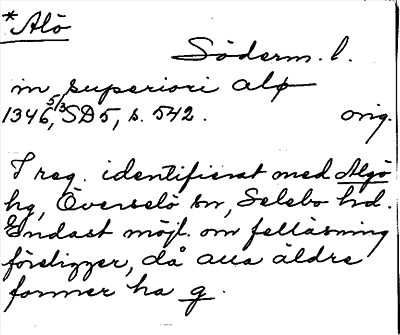 *Alö
Söderm. l.
in superiori alø
1346 5/3, SD5, s. 542. orig.
I reg. identifierat med Algö
hg, Överselö sn, Selebo hd.
Endast möjl. om felläsning
föreligger, då alla äldre
former ha g.